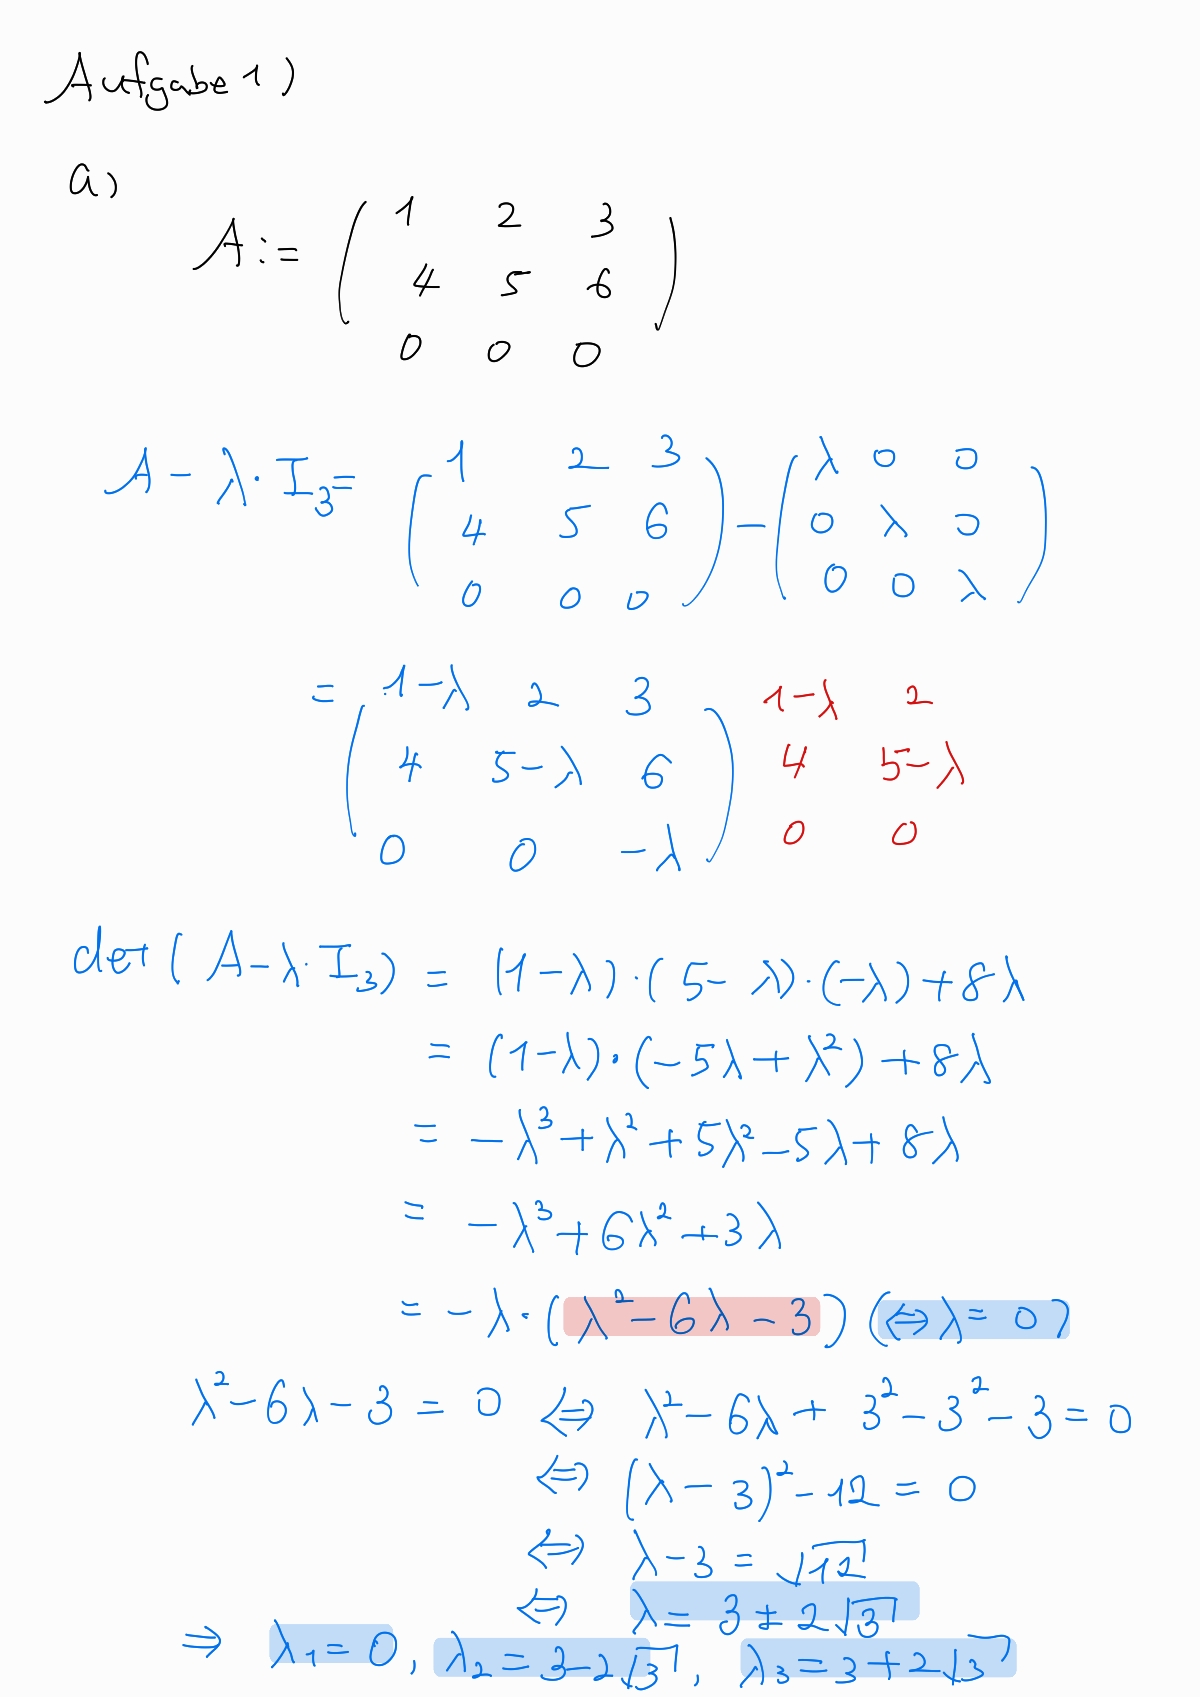 Aufgabe 1)
a)
A := ( 1 2 3
4 5 6
0 0 0 )
A - λ · I₃ = ( 1 2 3
4 5 6
0 0 0 ) - ( λ 0 0
0 λ 0
0 0 λ )
= ( 1-λ 2 3
4 5-λ 6
0 0 -λ ) 1-λ 2
4 5-λ
0 0
det( A - λ · I₃ ) = (1-λ) · (5-λ) · (-λ) + 8λ
= (1-λ) · (-5λ + λ²) + 8λ
= -λ³ + λ² + 5λ² - 5λ + 8λ
= -λ³ + 6λ² + 3λ
= -λ · (λ² - 6λ - 3) (⇔ λ = 0)
λ² - 6λ - 3 = 0 ⇔ λ² - 6λ + 3² - 3² - 3 = 0
⇔ (λ - 3)² - 12 = 0
⇔ λ - 3 = √12
⇔ λ = 3 ± 2√3
⇒ λ₁ = 0, λ₂ = 3 - 2√3, λ₃ = 3 + 2√3